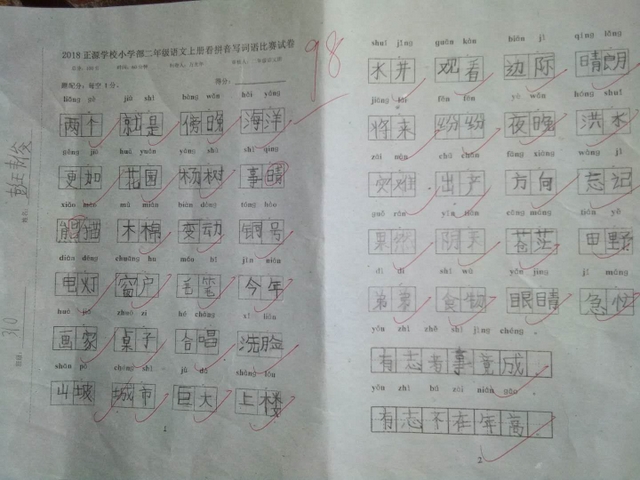 2018正源学校小学部二年级语文上册看拼音写词语比赛试卷
98
题配分：每空1分。
得分：
liǎng gè jiù shì bàng wǎn hǎi yáng
两个 就是 傍晚 海洋
gèng jiā huā yuán yáng shù shì qing
更如 花园 杨树 事晴
xióng māo mù mián biàn dòng tóng hào
熊猫 木棉 变动 铜号
diàn dēng chuāng hù máo bǐ jīn nián
电灯 窗户 毛笔 今年
huà jiā zhuō zi hé chàng xǐ liǎn
画家 桌子 合唱 洗脸
shān pō chéng shì jù dà shàng lóu
山坡 城市 巨大 上楼
1
shuǐ jǐng guān kàn biān jì qíng lǎng
水井 观看 边际 晴朗
jiāng lái fēn fēn yè wǎn hóng shuǐ
将来 纷纷 夜晚 洪水
zāi nàn chū chǎn fāng xiàng wàng jì
灾难 出产 方向 忘记
guǒ rán cāng máng tián yě
果然 苍茫 田野
dì di shí wù yǎn jing jí máng
弟弟 食物 眼睛 急忙
yǒu zhì zhě shì jìng chéng
有志者事竟成
yǒu zhì bù zài nián gāo
有志不在年高
2
310